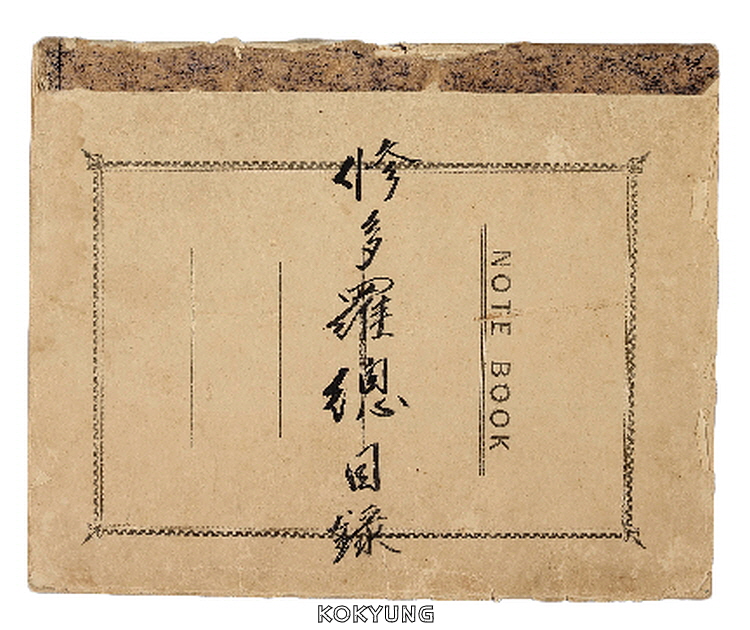 修多羅總目錄
NOTE BOOK
KOKYUNG